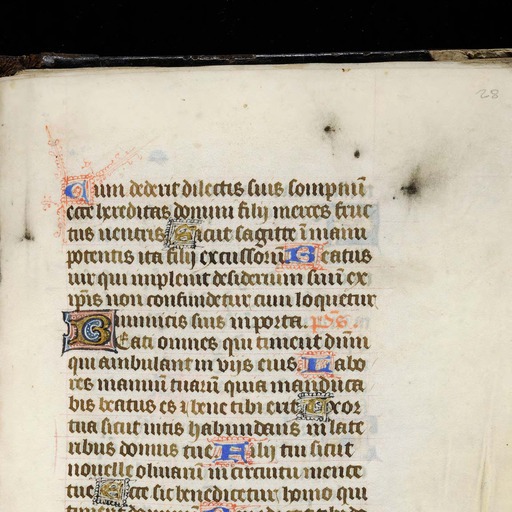 28
Cum dederit dilectis suis sompnũ
ecce hereditas domini filij merces fruc
tus ventris Sicut sagitte ĩ manu
potentis ita filij excussorũ Beatus
vir qui impleuit desiderium suũ ex
ip̃is non confundetur cum loquetur
inimicis suis in porta. p̃s.
Beati omnes qui timent dñm
qui ambulant in vijs eius Labo
res manuũ tuarũ quia manduca
bis beatus es ⁊ bene tibi erit Vxor
tua sicut vitis habundans in late
ribus domus tue Filij tui sicut
nouelle oliuarũ in circuitu mense
tue Ecce sic benedicetur homo qui